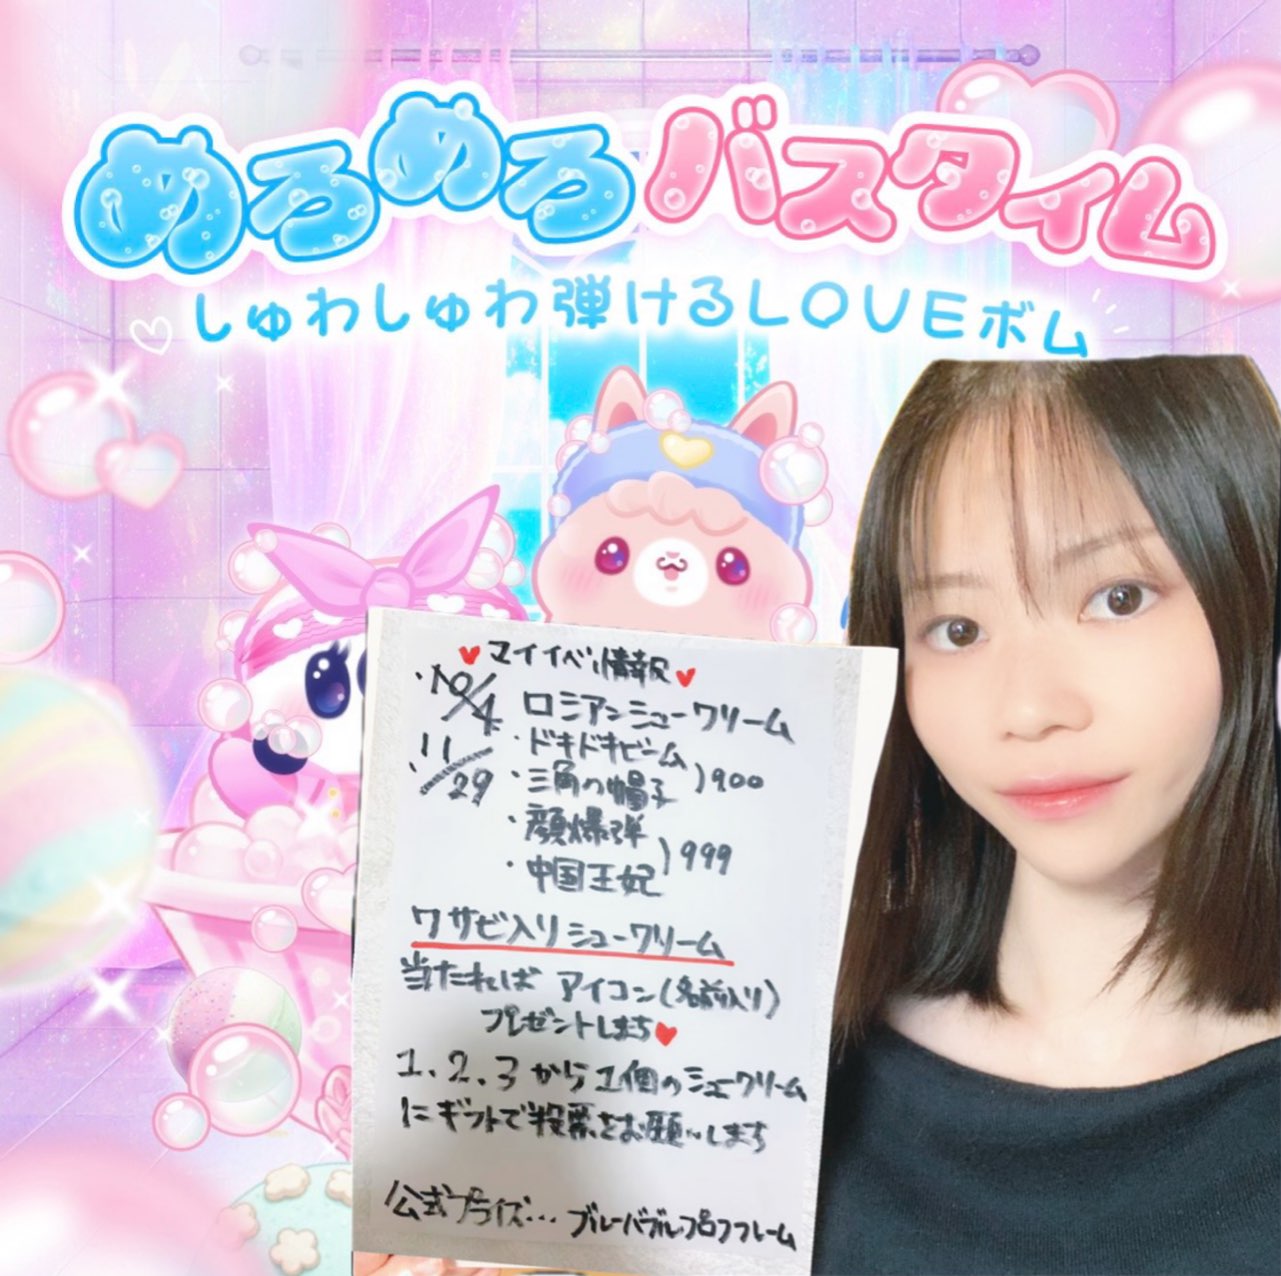 めるめるバスタイム
しゅわしゅわ弾けるLOVEボム
♥マイイベ情報♥
・10/4 ロシアンシュークリーム
・11/29 ・ドキドキビーム
・三角の帽子 )900
・顔爆弾
・中国王妃 )999
ワサビ入りシュークリーム
当たればアイコン(名前入り)
プレゼントしまち♥
1.2.3から1個のシュークリーム
にギフトで投票をお願いします
公式プライズ…ブルーバブルプロフフレーム